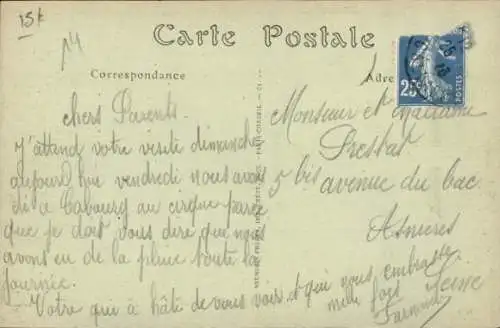 15f
Carte Postale
Correspondance
Adre
25c
POSTES
chers Parents
J'attend votre visite dimanche
aujourd'hui vendredi nous avons
été à Cabourg au cirque parce
que je doit vous dire que nous
avons eu de la pluie toute la
journée.
Votre qui à hâte de vous voir et qui vous embrasse
mille fois
Monsieur et Madame
Prestat
5 bis avenue du bac
Asnieres
Seine